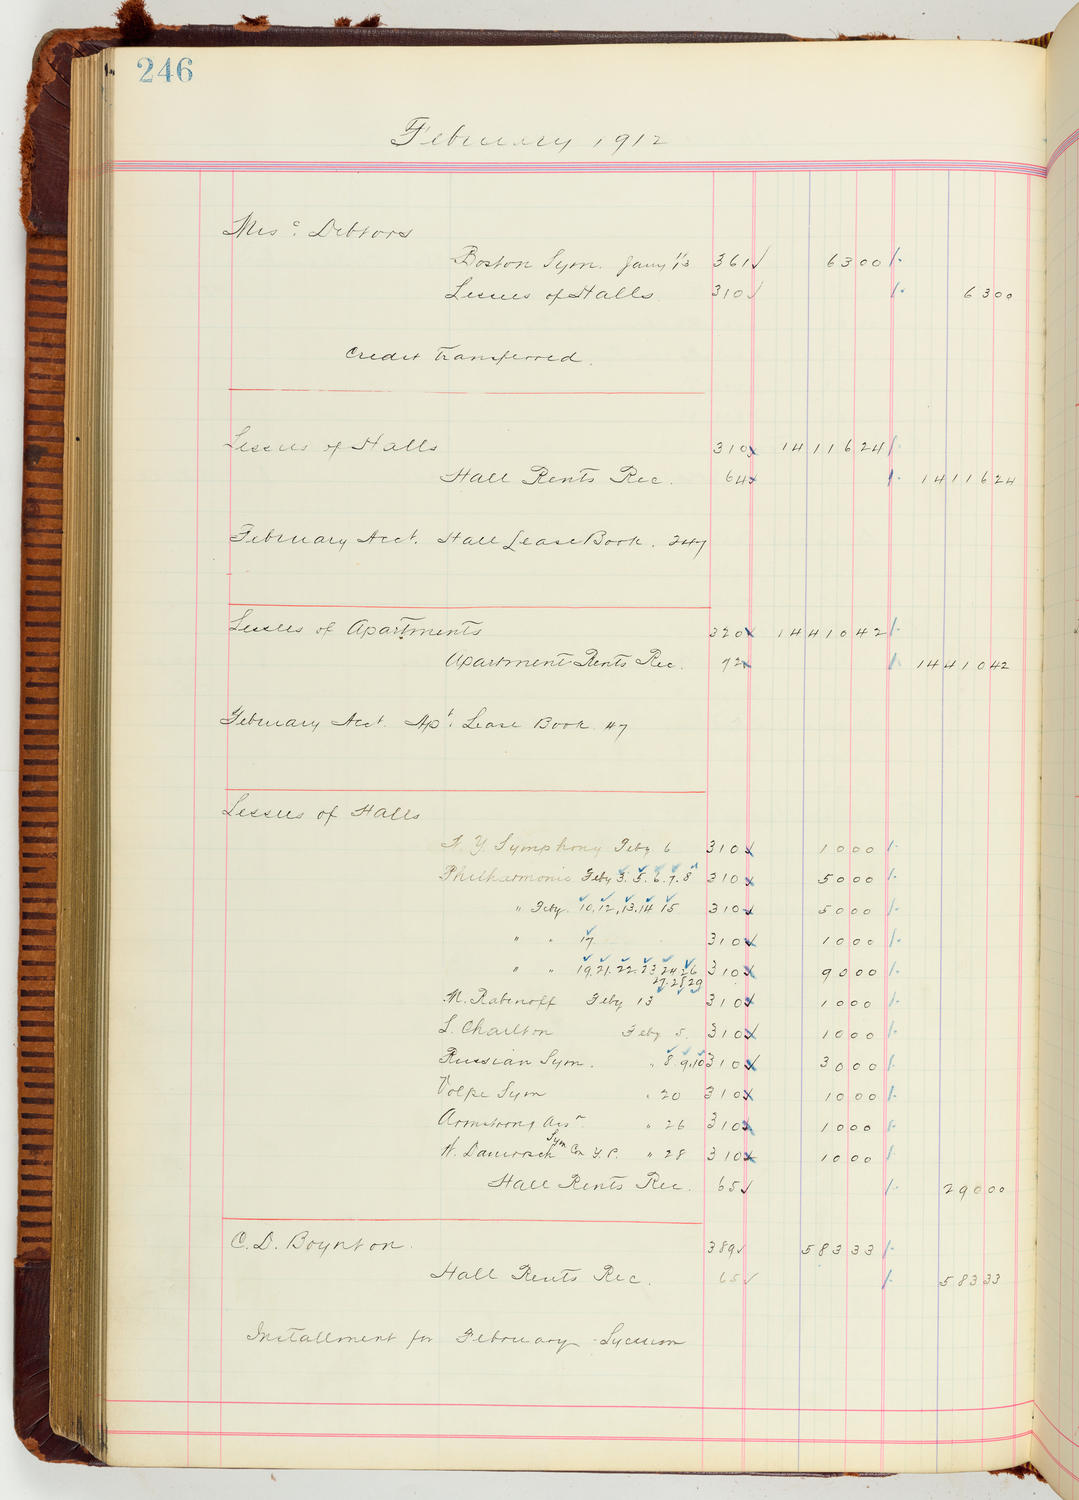 246
February 1912
Misc. Debtors
Boston Sym. Jany 13 361 6300
Lessees of Halls 310 6300
Credit Transferred.
Lessees of Halls 310 1411624
Hall Rents Rec. 64 1411624
February Acct. Hall Lease Book. 247
Lessees of Apartments 320 1441042
Apartment Rents Rec. 92 1441042
February Acct. Apt. Lease Book 47
Lessees of Halls
N. Y. Symphony Feby 6 310 1000
Philharmonic Feby 3. 5. 6. 7. 8 310 5000
" Feby. 10. 12. 13. 14 15 310 5000
" " 17 310 1000
" " 19. 21. 22. 23 24. 26 310 9000
27. 28 29
M. Rabinoff Feby 13 310 1000
L. Charlton Feby 5. 310 1000
Russian Sym. " 8. 9. 10 310 3000
Volpe Sym " 20 310 1000
Armstrong Assn " 26 310 1000
W. Damrosch Sym Con Y. P. " 28 310 1000
Hall Rents Rec. 65 29000
C. D. Boynton. 389 58333
Hall Rents Rec. 65 58333
Installment for February - Lyceum